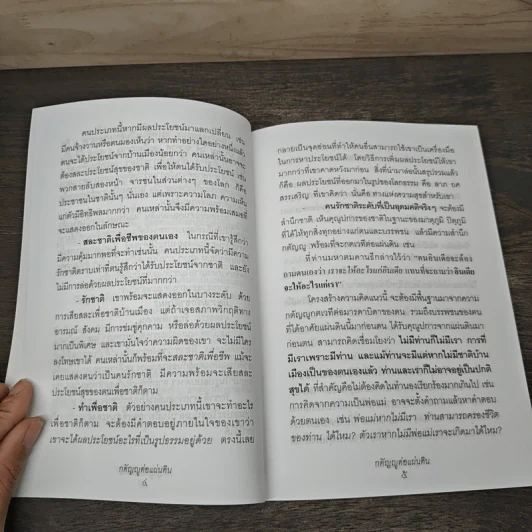 คนประเภทนี้หากมีผลประโยชน์มาแลกเปลี่ยน เช่น
มีคนจ้างวานหรือตนมองเห็นว่า หากทำอย่างใดอย่างหนึ่งแล้ว
ตนจะได้ประโยชน์จากบ้านเมืองน้อยกว่า คนเหล่านั้นอาจจะ
ต้องสละประโยชน์สุขของชาติ เพื่อให้ตนได้รับประโยชน์ เช่น
พวกสายลับสองหน้า จารชนในส่วนต่างๆ ของโลก ก็คือ
ประชาชนในชาตินั้นๆ นั่นเอง แต่เพราะความโลภ ความเห็น
แก่ตัวมีอิทธิพลมากกว่า คนเหล่านั้นจึงมีความพร้อมเสมอที่
จะแสดงออกในลักษณะ
- สละชาติเพื่อชีพของตนเอง ในกรณีที่เขารู้สึกว่า
มีความคุ้มมากพอที่จะทำเช่นนั้น คนประเภทนี้จัดว่ามีความ
รักชาติตราบเท่าที่ตนรู้สึกว่าได้รับประโยชน์จากชาติ และยัง
ไม่มีการล่อด้วยผลประโยชน์ที่มากกว่า
- รักชาติ เขาพร้อมจะแสดงออกในบางระดับ ด้วย
การเสียสละเพื่อชาติบ้านเมือง แต่ถ้าเจอสภาพวิกฤติทาง
อารมณ์ สังคม มีการข่มขู่คุกคาม หรือล่อด้วยผลประโยชน์
มากเป็นพิเศษ และเขามั่นใจว่าความผิดของเขา จะไม่มีใคร
ลงโทษเขาได้ คนเหล่านั้นก็พร้อมที่จะสละชาติเพื่อชีพ แม้จะ
เคยแสดงตนว่าเป็นคนรักชาติ มีความพร้อมจะเสียสละ
ประโยชน์สุขของตนเพื่อชาติก็ตาม
- ทำเพื่อชาติ ตัวอย่างคนประเภทนี้เขาจะทำอะไร
เพื่อชาติก็ตาม จะต้องมีคำตอบอยู่ภายในใจของเขาว่า
เขาจะได้ผลประโยชน์อะไรที่เป็นรูปธรรมอยู่ด้วย ตรงนี้เลย
กตัญญูต่อแผ่นดิน
๘
กลายเป็นจุดอ่อนที่ทำให้คนอื่นสามารถใช้เขาเป็นเครื่องมือ
ในการหาประโยชน์ได้ โดยวิธีการเพิ่มผลประโยชน์ให้เขา
มากกว่าที่เขาคาดหวังมาก่อน สิ่งที่นำมาล่อนั้นสรุปรวมแล้ว
ก็คือ ผลประโยชน์ที่ออกมาในรูปของโลกธรรม คือ ลาภ ยศ
สรรเสริญ ที่เขาคิดว่า นั่นคือ ทางแห่งความสุขสำหรับเขา
คนรักชาติระดับที่เป็นอุดมคติจริงๆ จะต้องมี
สำนึกชาติ เห็นคุณูปการของชาติในฐานะของมาตุภูมิ ปิตุภูมิ
ที่ได้ให้ทุกสิ่งทุกอย่างแก่ตนและบรรพชน แล้วมีความสำนึก
กตัญญู พร้อมที่จะกตเวทีต่อแผ่นดิน เช่น
ที่ท่านมหาตมคานธีกล่าวไว้ว่า "คนอินเดียจะต้อง
ถามตนเองว่า เราจะให้อะไรแก่อินเดีย แทนที่จะถามว่า อินเดีย
จะให้อะไรแก่เรา"
โครงสร้างความคิดแนวนี้ จะต้องมีพื้นฐานมาจากความ
กตัญญูกตเวทีต่อมารดาบิดาของตน รวมถึงบรรพชนของตน
ที่ได้อาศัยแผ่นดินนี้มาก่อนตน ได้รับคุณูปการจากแผ่นดินมา
ก่อนตน สามารถคิดเชื่อมโยงว่า ไม่มีท่านก็ไม่มีเรา การที่
มีเราเพราะมีท่าน และแม้ท่านจะมีแต่หากไม่มีชาติบ้าน
เมืองเป็นของตนเองแล้ว ท่านและเราก็ไม่อาจอยู่เป็นปกติ
สุขได้ ที่สำคัญคือไม่ต้องคิดในทำนองเรียกร้องมากเกินไป เช่น
การคิดจากความเป็นพ่อแม่ อาจจะตั้งคำถามแล้วหาคำตอบ
ด้วยตนเอง เช่น พ่อแม่หากไม่มีเรา ท่านสามารถครองชีวิต
ของท่าน ได้ไหม? ตัวเราหากไม่มีพ่อแม่จะเกิดมาได้ไหม?
กตัญญูต่อแผ่นดิน
๙